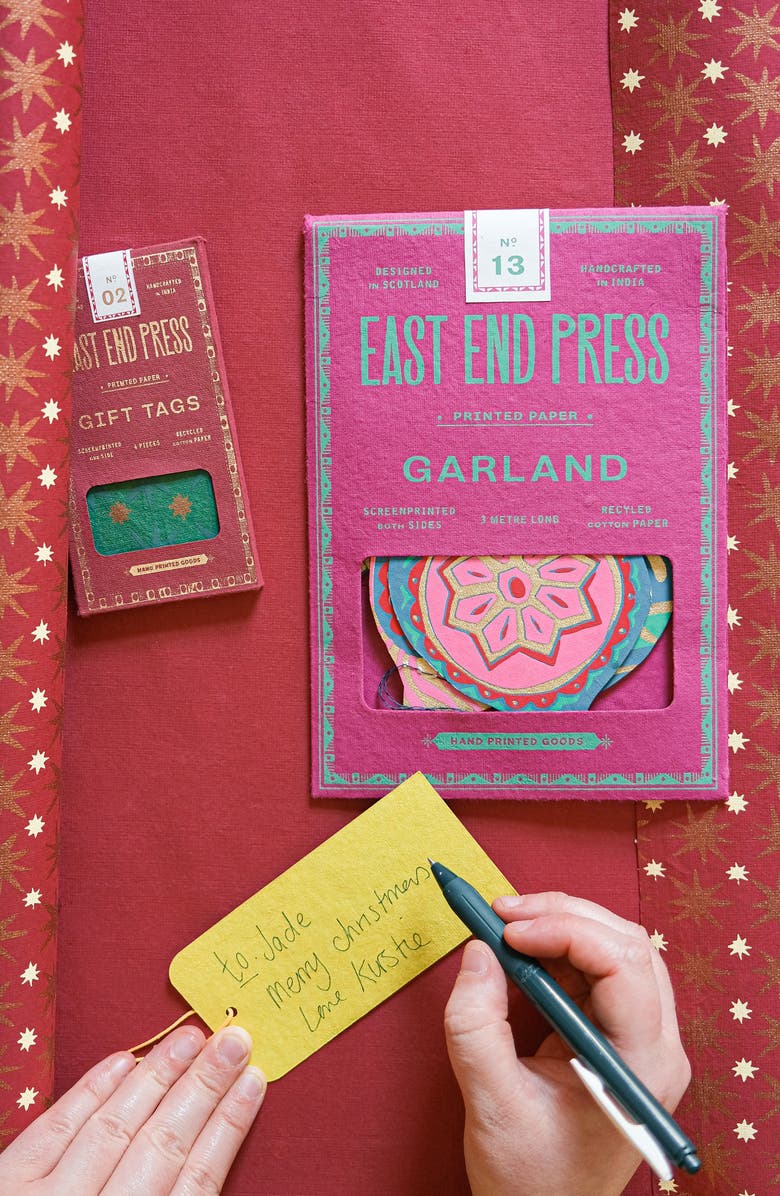 Nº
02
HANDCRAFTED
IN INDIA
AST END PRESS
• PRINTED PAPER •
GIFT TAGS
SCREENPRINTED
ONE SIDE
4 PIECES
RECYCLED
COTTON PAPER
HAND PRINTED GOODS
Nº
13
DESIGNED
IN SCOTLAND
HANDCRAFTED
IN INDIA
EAST END PRESS
• PRINTED PAPER •
GARLAND
SCREENPRINTED
BOTH SIDES
3 METRE LONG
RECYLED
COTTON PAPER
HAND PRINTED GOODS
to Jade
merry christmas
Love Kirstie